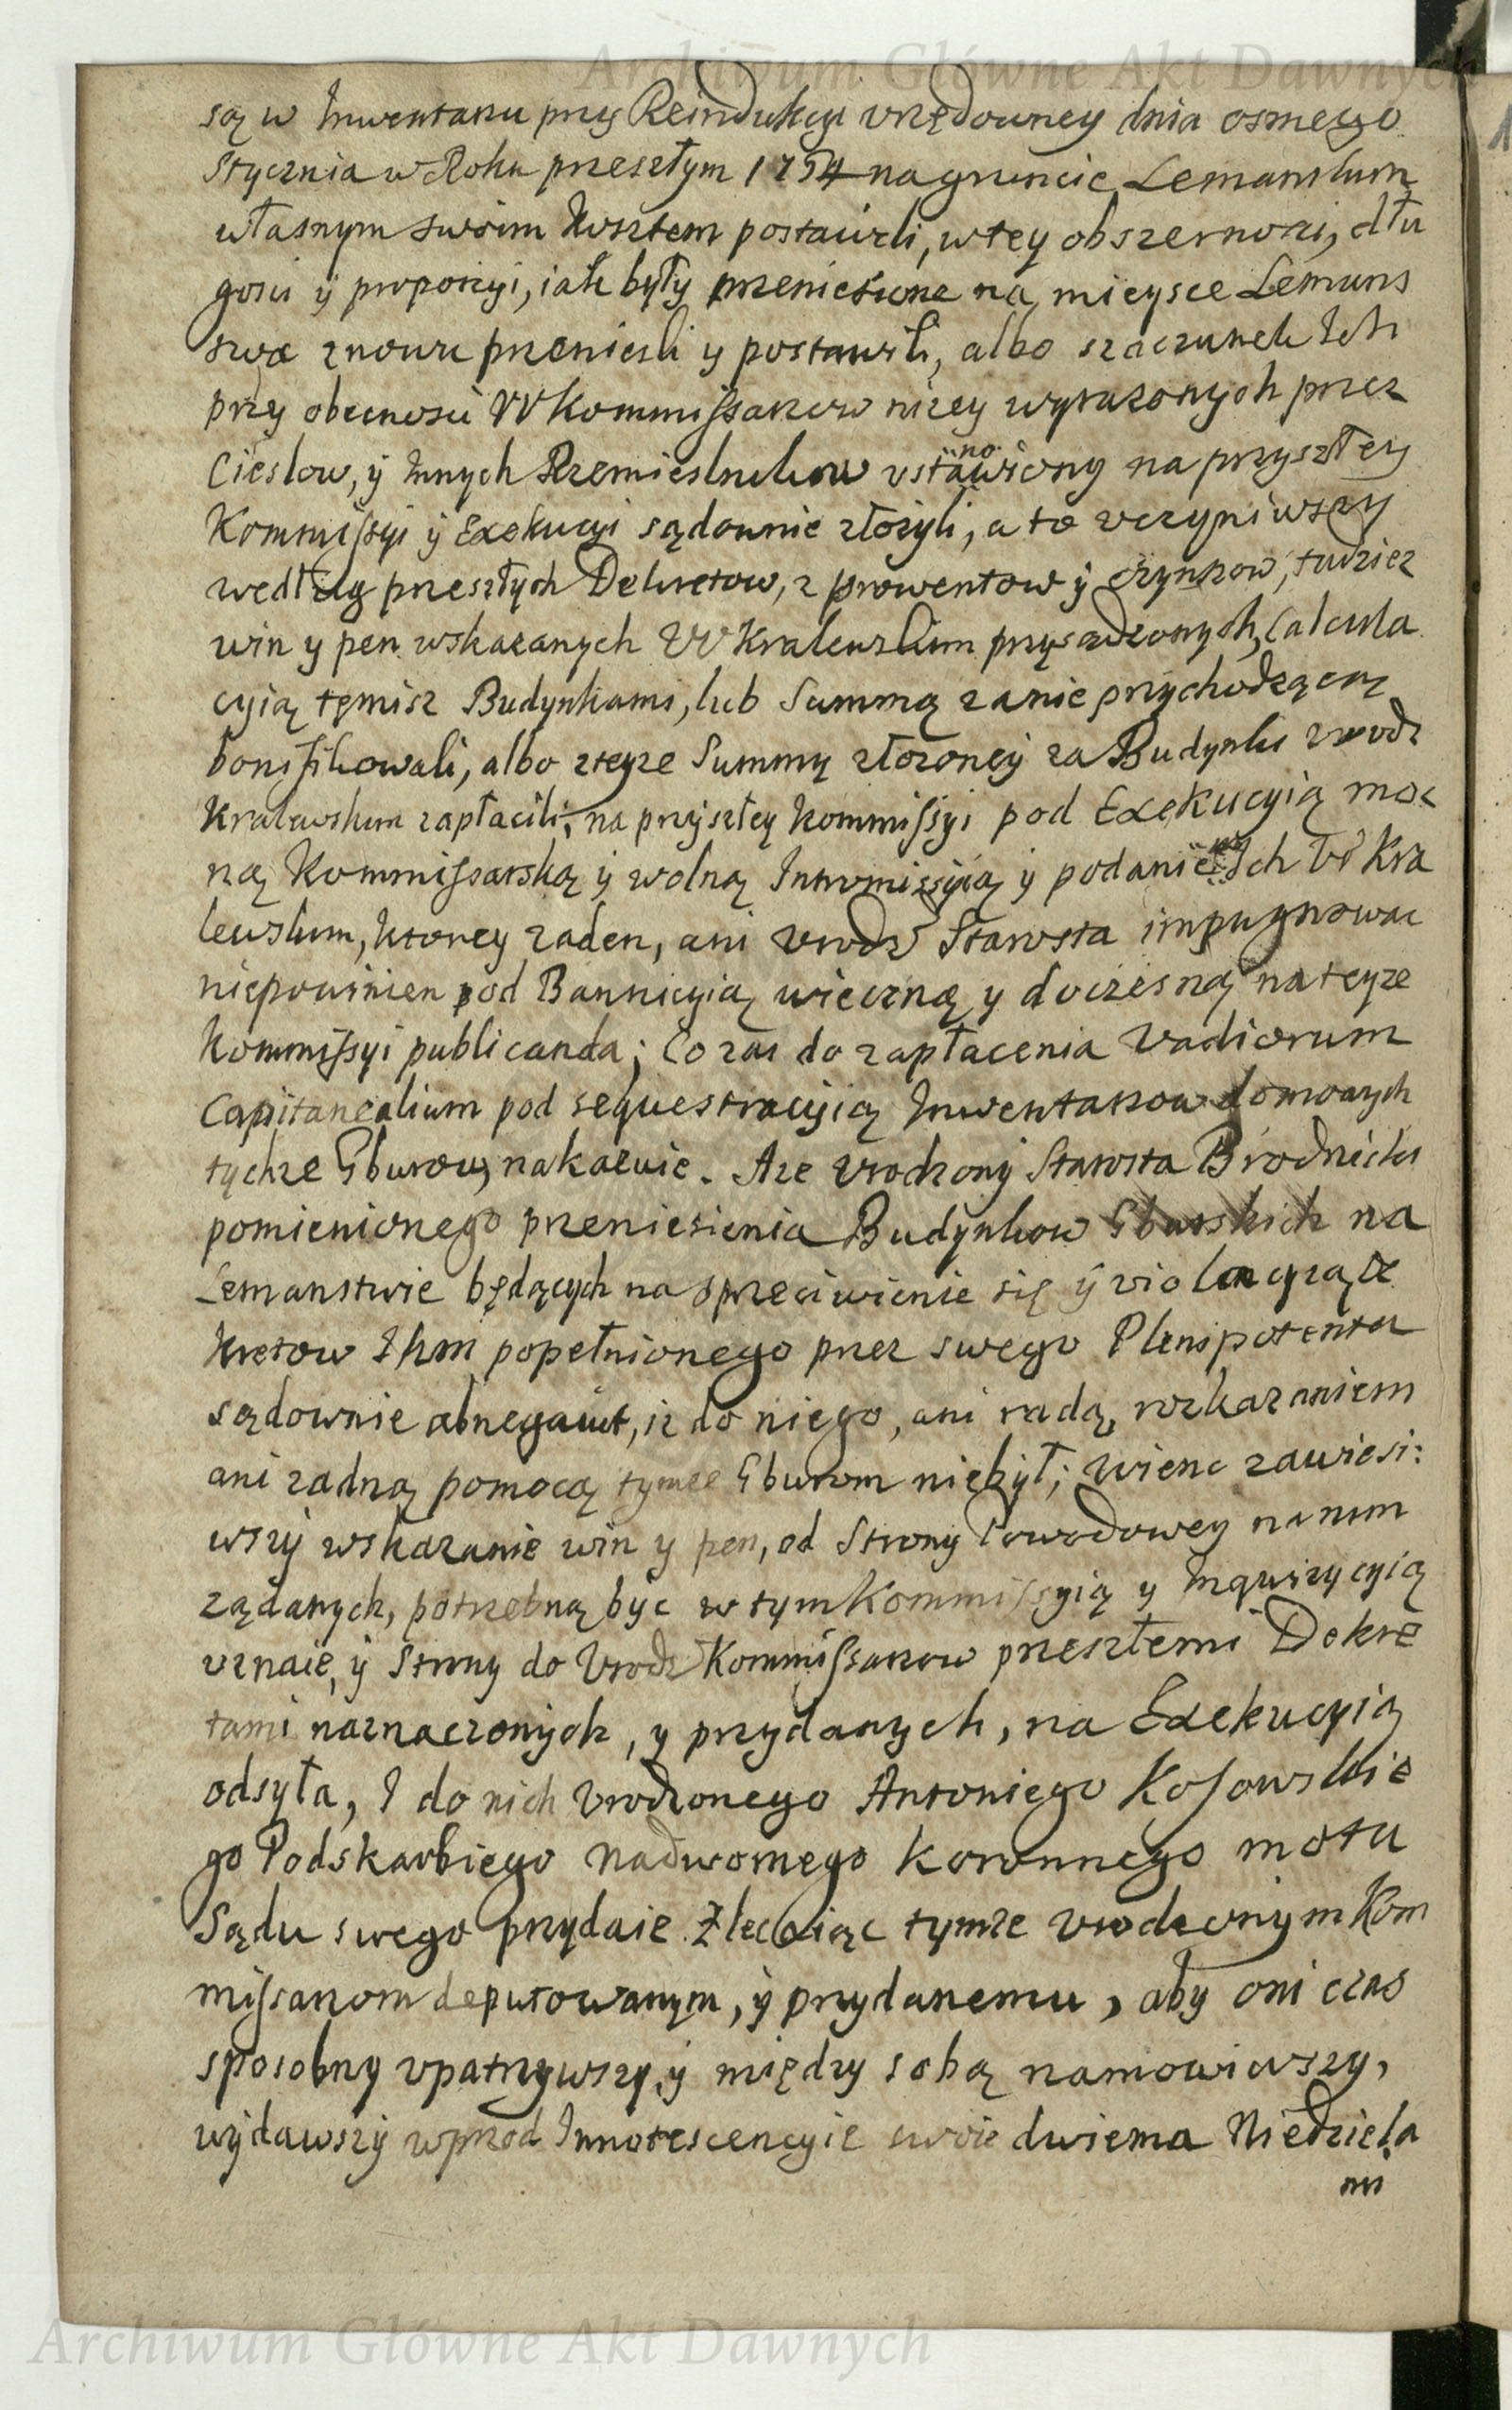 Archiwum Główne Akt Dawnych
są w Inwentarzu przy Reindukcyi vrzędowney dnia osmego
Stycznia w Roku przeszłym 1754 na gruncie Lemanskim
własnym swoim kosztem postawili, w tey obszernosci, dłu
gosci ÿ proporcyi, iak były przeniesione na mieysce Lemans
twa znowu przeniesli y postawili, albo szacunek Ich
przy obecnosci W Kommissarzow nizey wyrazonych przez
Cieslow, ÿ Innych Rzemieslnikow vstanowiony na przyszłey
Kommissyi ÿ Exekucyi sądownie złozyli, a to vczyniwszy
według przeszłych Dekretow, z prowentow ÿ czynszow, tudziez
win y pen wskazanych W Kralewskim przysądzonych, Calcula
cyią temisz Budynkami, lub Summą za nie przychodzącą
bonifikowali, albo z teyze Summy złozoney za Budynki vrodz
Kralewskim zapłacili, na przyszłey Kommissyi pod Exekucyią moc
ną Kommissarską ÿ wolną Intromissyią ÿ podanie Ich W Kra
lewskim, ktorey zaden, ani vrodz Starosta impugnowac
niepowinien pod Bannicyią wieczną y doczesną na teyze
Kommissyi publicanda; Co zas do zapłacenia Vadiorum
Capitanealium pod sequestracyią Inwentarzow domowych
tychze Gburow, nakazuie. Aze Vrodzony Starosta Brodnicki
pomienionego przeniesienia Budynkow Gburskich na
Lemanstwie będących na sprzeciwienie się ÿ violacyią de
kretow Ihm popełnionego przez swego Plenipotenta
sądownie abnegavit, iz do niego, ani radą, rozkazaniem
ani zadną pomocą tymze Gburom niebył; Wienc zawiesi:
wszÿ wskazanie win y pen, od Strony Powodowey na nim
ządanych, potrzebną byc w tym Kommissyią y Inquizycyią
vznaie, ÿ Strony do Vrodz Kommissarzow przeszłemi Dekre
tami naznaczonych, y przydanych, na Exekucyią
odsyła, I do nich Vrodzonego Antoniego Kossowskie
go Podskarbiego Nadwornego Koronnego motu
Sądu swego przydaie. Zlecaiąc tymze vrodzonym Kom
missarzom deputowanym, ÿ przydanemu, aby oni czas
sposobny vpatrzywszy, ÿ między sobą namowiwszy,
wydawszÿ wprzod Innotescencyie swoie dwiema Niedziela
mi
Archiwum Główne Akt Dawnych